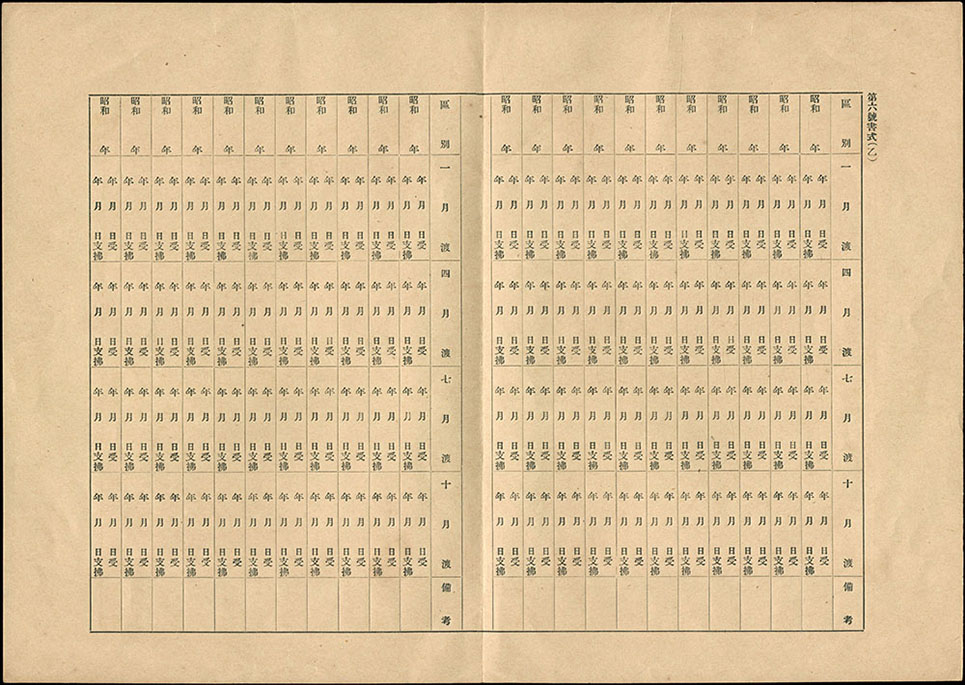 第六號書式(乙)
區別 一月渡 四月渡 七月渡 十月渡 備考
昭和 年
年月日受 年月日受 年月日受 年月日受
年月日支拂 年月日支拂 年月日支拂 年月日支拂
昭和 年
年月日受 年月日受 年月日受 年月日受
年月日支拂 年月日支拂 年月日支拂 年月日支拂
昭和 年
年月日受 年月日受 年月日受 年月日受
年月日支拂 年月日支拂 年月日支拂 年月日支拂
昭和 年
年月日受 年月日受 年月日受 年月日受
年月日支拂 年月日支拂 年月日支拂 年月日支拂
昭和 年
年月日受 年月日受 年月日受 年月日受
年月日支拂 年月日支拂 年月日支拂 年月日支拂
昭和 年
年月日受 年月日受 年月日受 年月日受
年月日支拂 年月日支拂 年月日支拂 年月日支拂
昭和 年
年月日受 年月日受 年月日受 年月日受
年月日支拂 年月日支拂 年月日支拂 年月日支拂
昭和 年
年月日受 年月日受 年月日受 年月日受
年月日支拂 年月日支拂 年月日支拂 年月日支拂
昭和 年
年月日受 年月日受 年月日受 年月日受
年月日支拂 年月日支拂 年月日支拂 年月日支拂
昭和 年
年月日受 年月日受 年月日受 年月日受
年月日支拂 年月日支拂 年月日支拂 年月日支拂
昭和 年
年月日受 年月日受 年月日受 年月日受
年月日支拂 年月日支拂 年月日支拂 年月日支拂
區別 一月渡 四月渡 七月渡 十月渡 備考
昭和 年
年月日受 年月日受 年月日受 年月日受
年月日支拂 年月日支拂 年月日支拂 年月日支拂
昭和 年
年月日受 年月日受 年月日受 年月日受
年月日支拂 年月日支拂 年月日支拂 年月日支拂
昭和 年
年月日受 年月日受 年月日受 年月日受
年月日支拂 年月日支拂 年月日支拂 年月日支拂
昭和 年
年月日受 年月日受 年月日受 年月日受
年月日支拂 年月日支拂 年月日支拂 年月日支拂
昭和 年
年月日受 年月日受 年月日受 年月日受
年月日支拂 年月日支拂 年月日支拂 年月日支拂
昭和 年
年月日受 年月日受 年月日受 年月日受
年月日支拂 年月日支拂 年月日支拂 年月日支拂
昭和 年
年月日受 年月日受 年月日受 年月日受
年月日支拂 年月日支拂 年月日支拂 年月日支拂
昭和 年
年月日受 年月日受 年月日受 年月日受
年月日支拂 年月日支拂 年月日支拂 年月日支拂
昭和 年
年月日受 年月日受 年月日受 年月日受
年月日支拂 年月日支拂 年月日支拂 年月日支拂
昭和 年
年月日受 年月日受 年月日受 年月日受
年月日支拂 年月日支拂 年月日支拂 年月日支拂
昭和 年
年月日受 年月日受 年月日受 年月日受
年月日支拂 年月日支拂 年月日支拂 年月日支拂